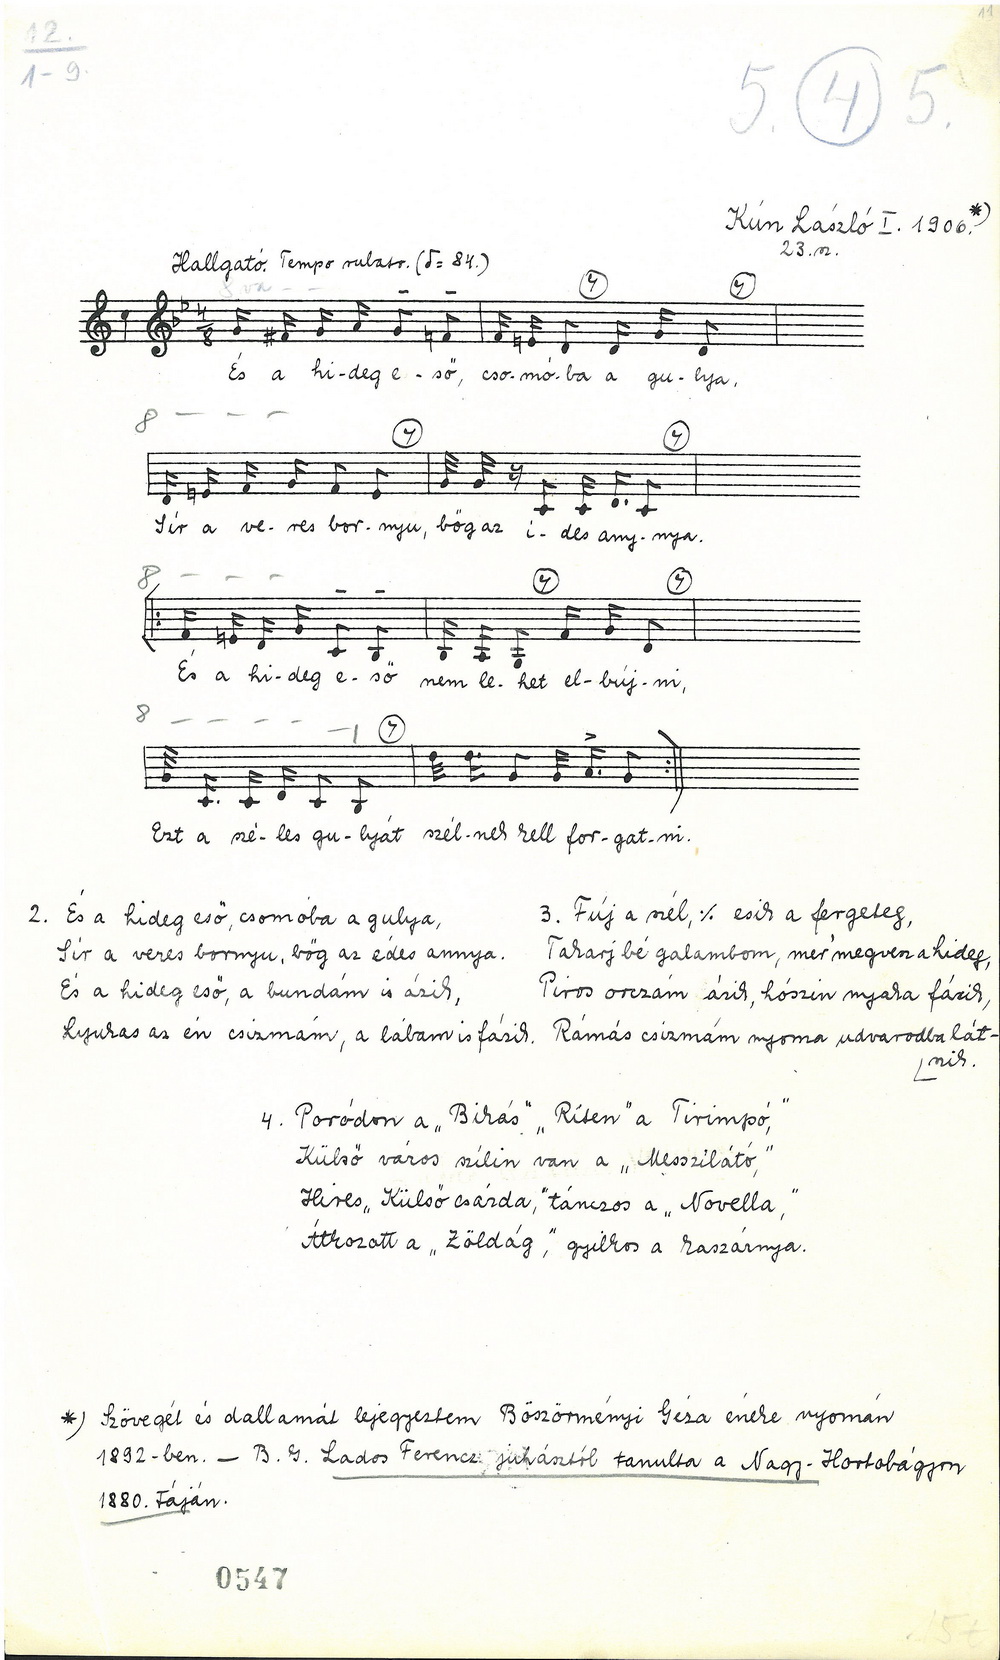 11
12.
1-9.
5. 4 5.
Kún László I. 1906.*)
23. sz.
Hallgató. Tempo rubato. (♪= 84.)
8va - -
És a hi-deg e-ső, cso-mó-ba a gu-lya,
8 - - -
Sír a ve-res bor-nyu, bőg az í-des any-nya.
8 - - -
És a hi-deg e-ső nem le-het el-búj-ni,
8 - - - -
Ezt a szé-les gu-lyát szél-nek kell for-gat-ni.
2. És a hideg eső, csomóba a gulya,
Sír a veres bornyu, bőg az édes annya.
És a hideg eső, a bundám is ázik,
Lyukas az én csizmám, a lábam is fázik.
3. Fúj a szél, ·/. esik a fergeteg,
Takarj bé galambom, mer' megvesz a hideg,
Piros orczam ázik, hószin nyaka fázik,
Rámás csizmám nyoma udvarodba lát-
szik.
4. Poródon a „Bikás” „Ríten” a Tirimpó,”
Külső város szílin van a „Messzilátó,”
Híres „Külső csárda,” tánczos a „Novella,”
Átkozott a „Zöldág,” gyilkos a kaszárnya.
*) Szövegét és dallamát lejegyeztem Böszörményi Géza éneke nyomán
1892-ben. — B. G. Lados Ferencz juhásztól tanulta a Nagy-Hortobágyon
1880. táján.
0547